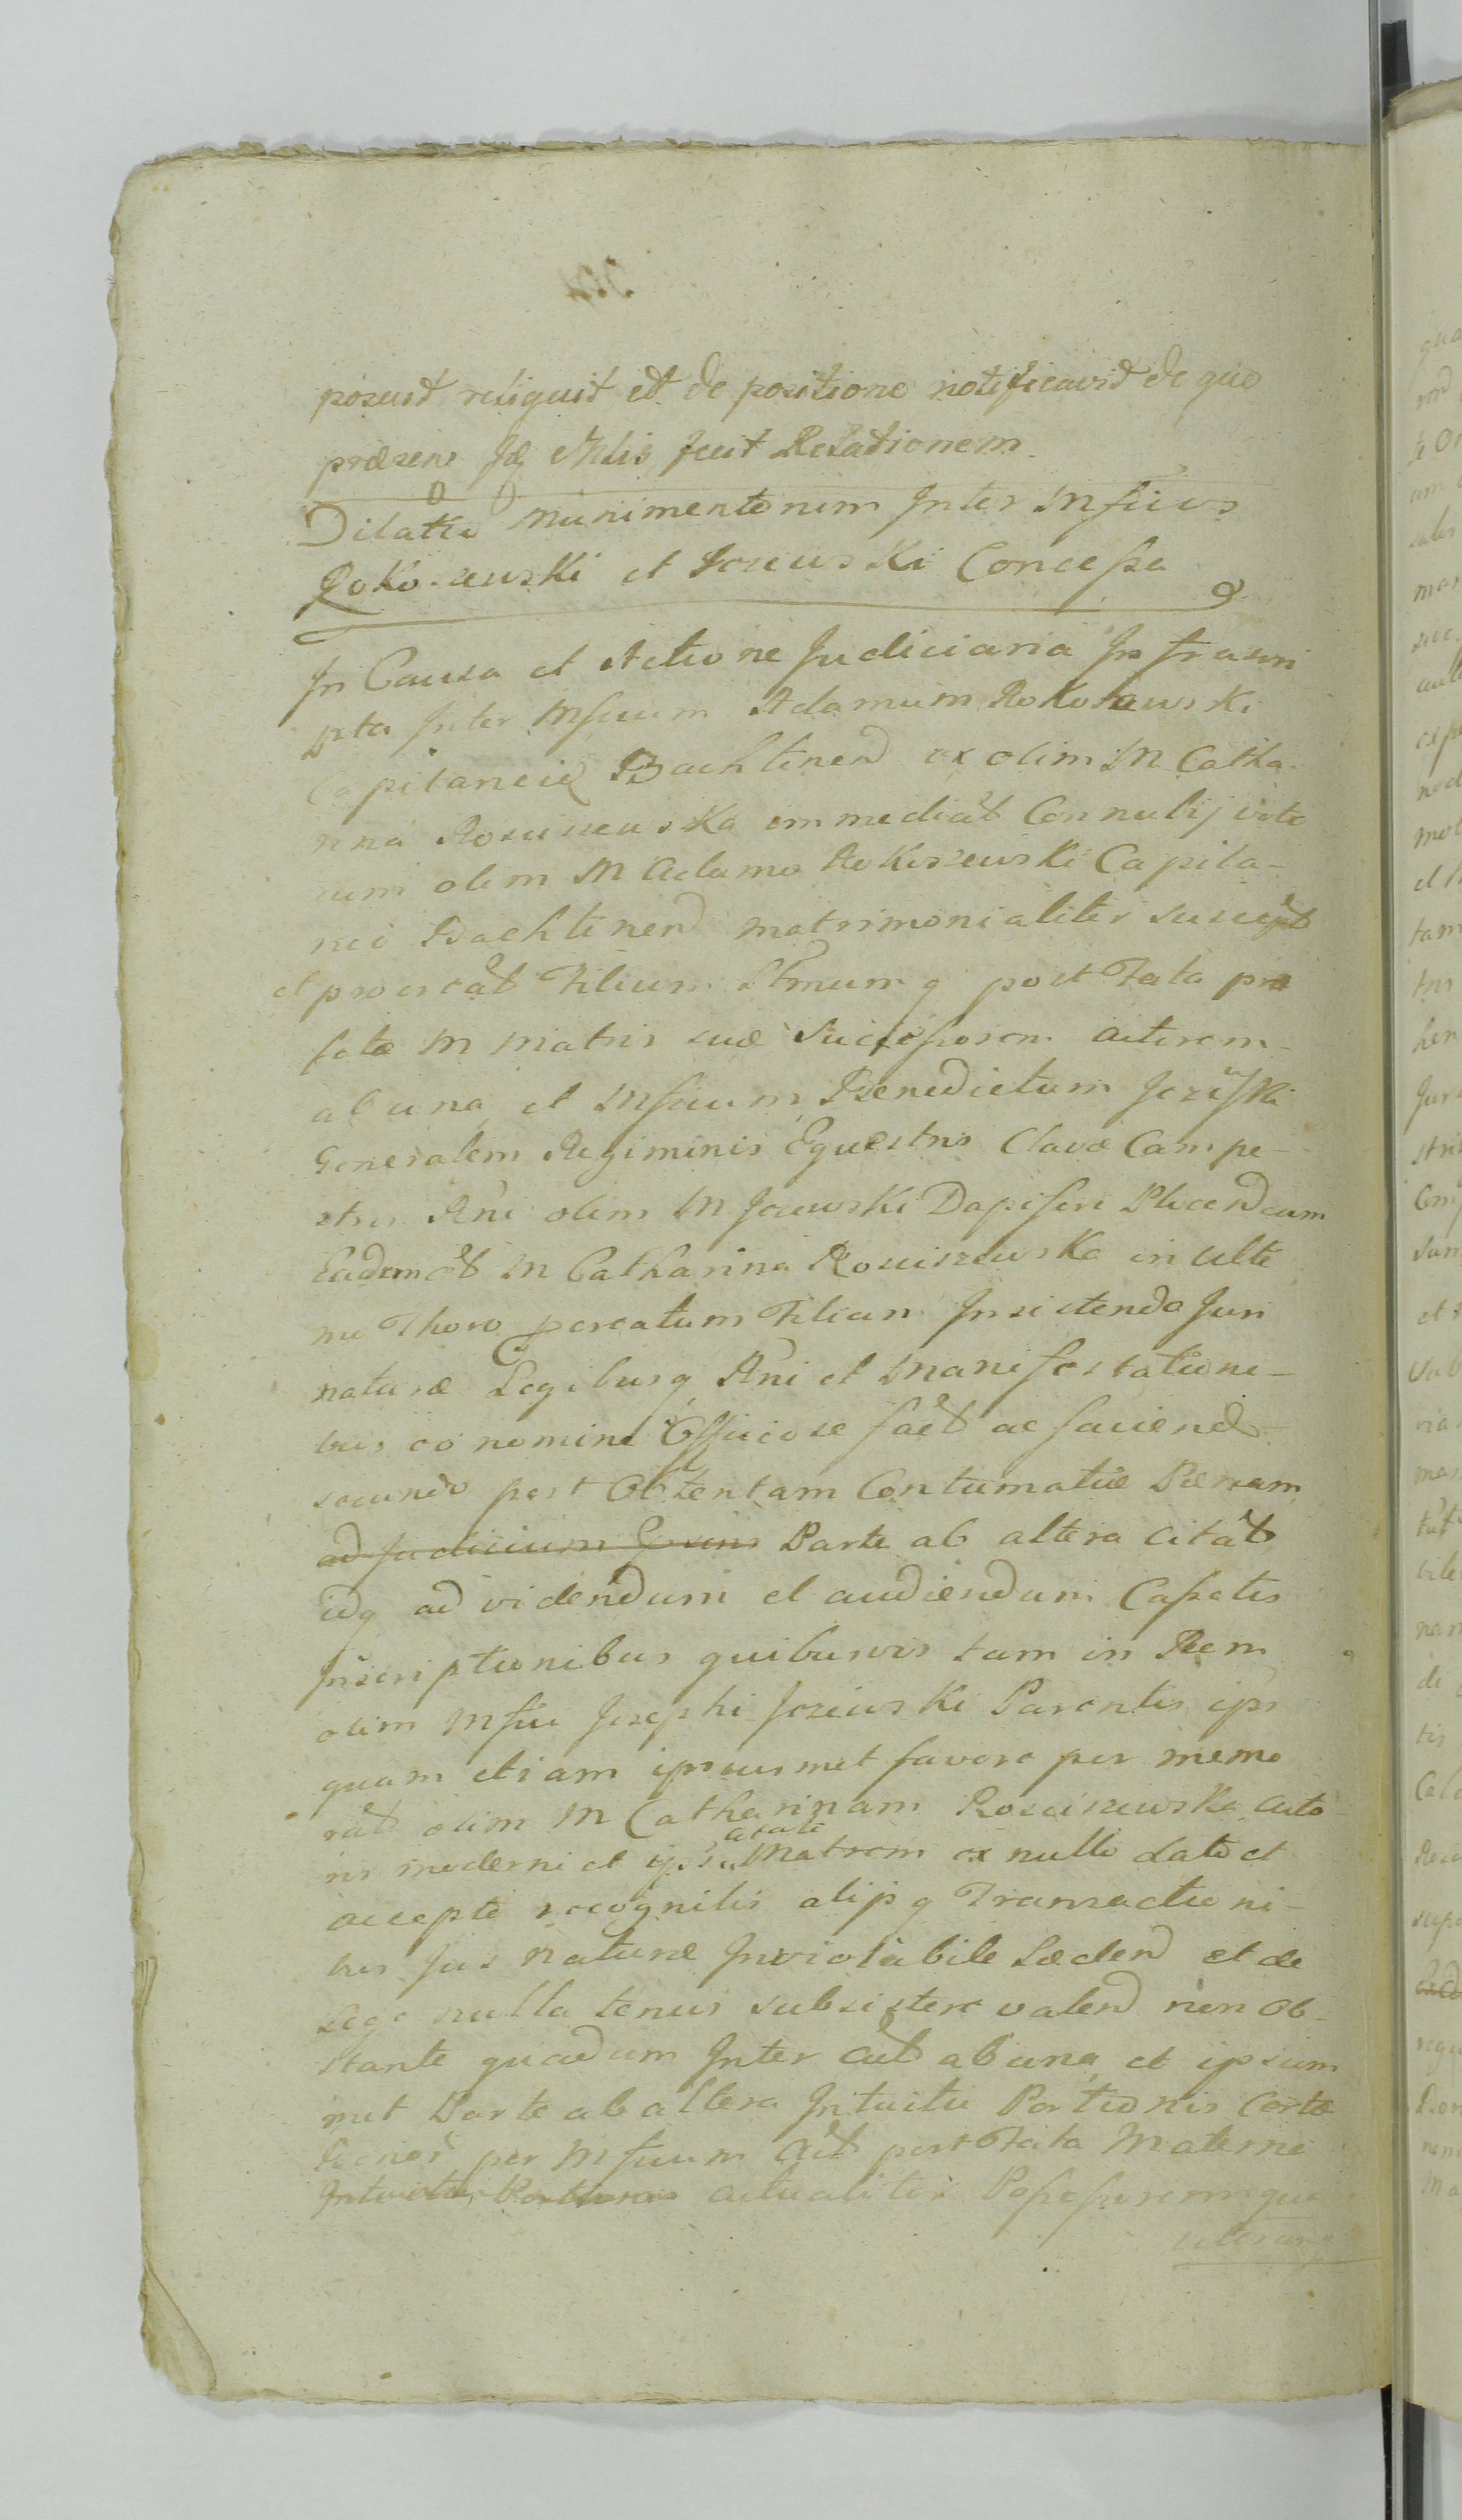 posuit reliquit et de positione notificavit de quo
præsens fecit Relationem
Dilatio Munimentorum Inter Mficos
Rokoszewski et Jozewski Concessa
In Causa et Actione Judiciaria Infrascri
pta Inter Mficum Adamum Rokoszewski
Capitaneid Bachtinen ex olim M Catha-
rina Rosciszewska immediat Connubij voto
cum olim M Adamo Rokoszewski Capita-
neo Bachtinen matrimonialiter suscept
et procreat Filium q post Fata præ
fatæ M Matris suæ Successorem Actorem
ab una et Mficum Benedictum Jozefski
Generalem Regiminis Equestris Clavæ Campe-
stris Rni olim M Jozewski Dapiferi Plocen cum
Eadem M Catharina Rosciszewska in Ulti
mo Thoro pcreatum Filium Insistendo Juri
naturæ Legibusq Rni et Manifestationi-
bus eo nomine Officiose fact ac faciend
secundo post Obtentam Contumatiæ Pænam
ad Judicium Parte ab altera Citat
idq ad videndum et audiendum Cassatis
Inscriptionibus quibusvis tam in Rem
olim Mfici Josephi Jozewski Parentis ips
quam etiam ipsiusmet favore per memo
rat olim M Catharinam Rosciszewska Acto
ris moderni et ips citati Matrem ex nullo dato et
accepto recognitis alijsq Transactioni-
bus Jus Naturæ Inviolabile Læden et de
Lege nulla tenus subsistere valen non ob-
stante quadam Inter Act ab una et ipsum
met Parte ab altera Intuitu Portionis Certæ
per Mficum Act post Fata Materna
Intuitu Portionis actualiter Possessorumque